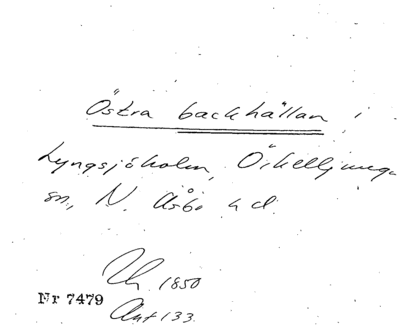 Östra backhällan i
Lyngsjöholm, Örkelljunga
sn, N. Åsbo hd.
1850
Nr 7479
Ant 133.